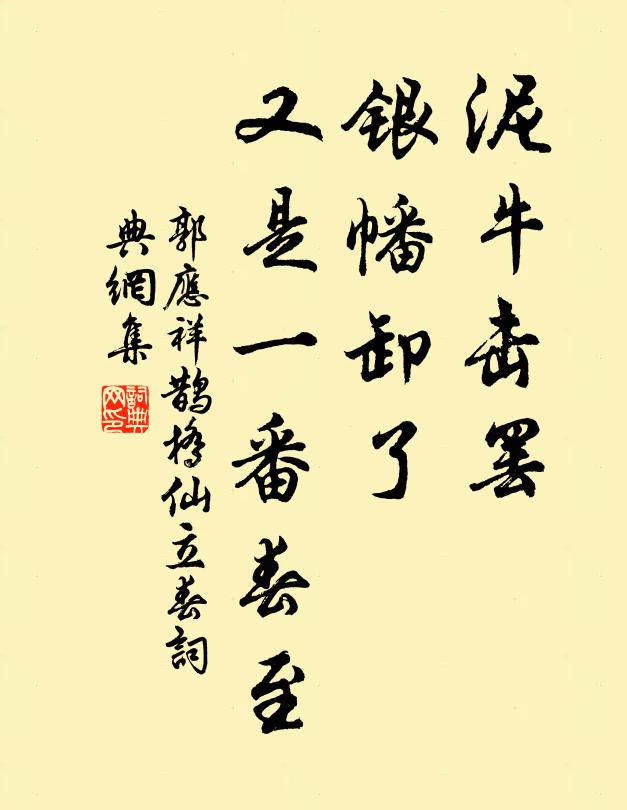 泥牛击罢
銀幡卸了
又是一番春至
郭應祥鵲橋仙立春詞
典網集
詞典
网印